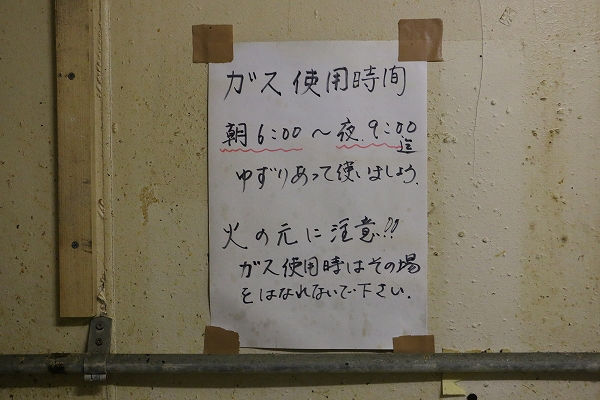 ガス使用時間
朝6:00～夜.9:00迄
ゆずりあって使いましょう.
火の元に注意!!
ガス使用時はその場
をはなれないで下さい.